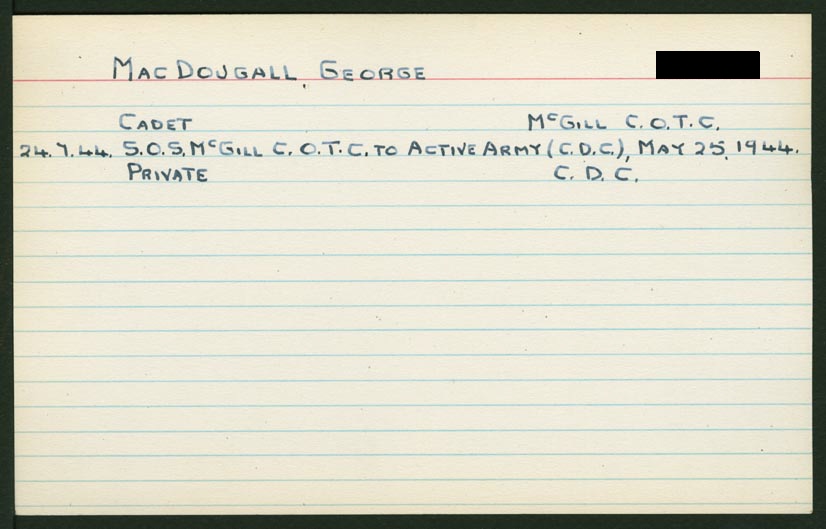 MacDougall, George
Cadet McGill C.O.T.C.
24.7.44. S.O.S. McGill C.O.T.C. to Active Army (C.D.C.), May 25, 1944.
Private C.D.C.